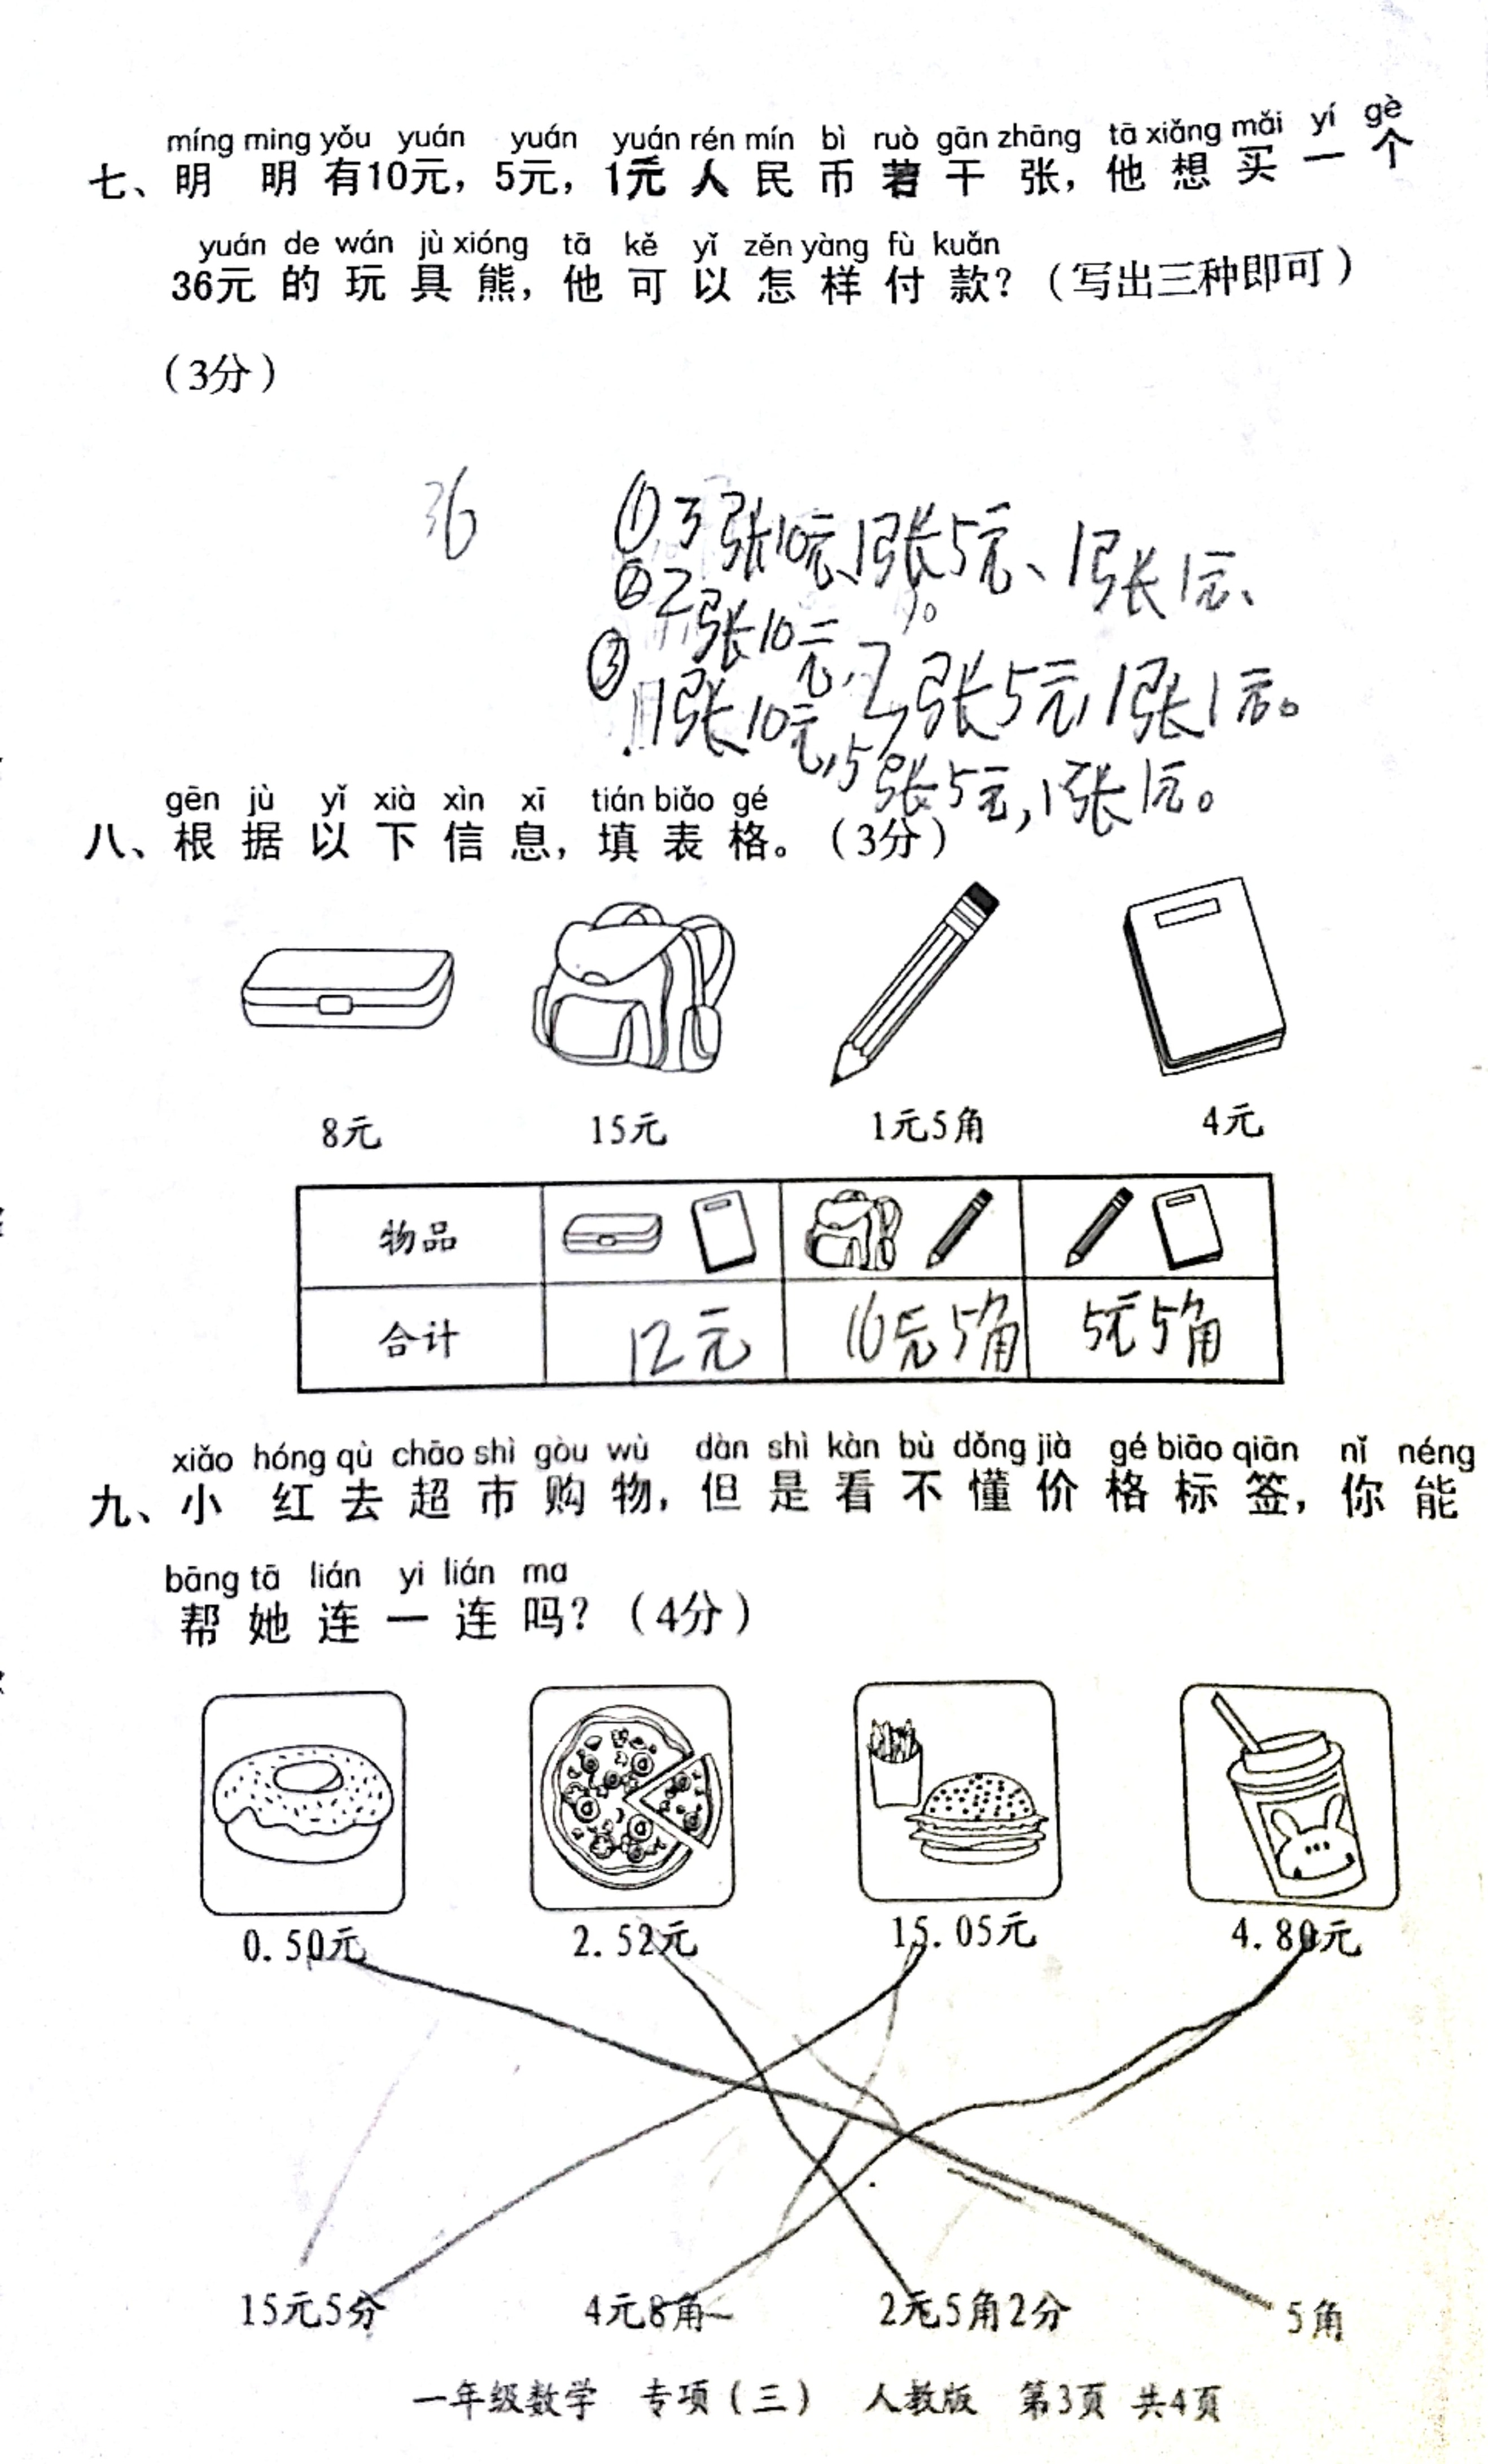 míng ming yǒu yuán yuán yuán rén mín bì ruò gān zhāng tā xiǎng mǎi yí gè
七、明 明 有10元，5元，1元 人 民 币 若 干 张，他 想 买 一 个
yuán de wán jù xióng tā kě yǐ zěn yàng fù kuǎn
36元 的 玩 具 熊，他 可 以 怎 样 付 款？（写出三种即可）
（3分）
36
①3张10元、1张5元、1张1元、
②2张10元，2张5元，1张1元。
③1张10元，5张5元，1张1元。
gēn jù yǐ xià xìn xī tián biǎo gé
八、根 据 以 下 信 息，填 表 格。（3分）
8元 15元 1元5角 4元
物品
合计 12元 16元5角 5元5角
xiǎo hóng qù chāo shì gòu wù dàn shì kàn bù dǒng jià gé biāo qiān nǐ néng
九、小 红 去 超 市 购 物，但 是 看 不 懂 价 格 标 签，你 能
bāng tā lián yi lián ma
帮 她 连 一 连 吗？（4分）
0.50元 2.52元 15.05元 4.80元
15元5分 4元8角 2元5角2分 5角
一年级数学 专项（三） 人教版 第3页 共4页